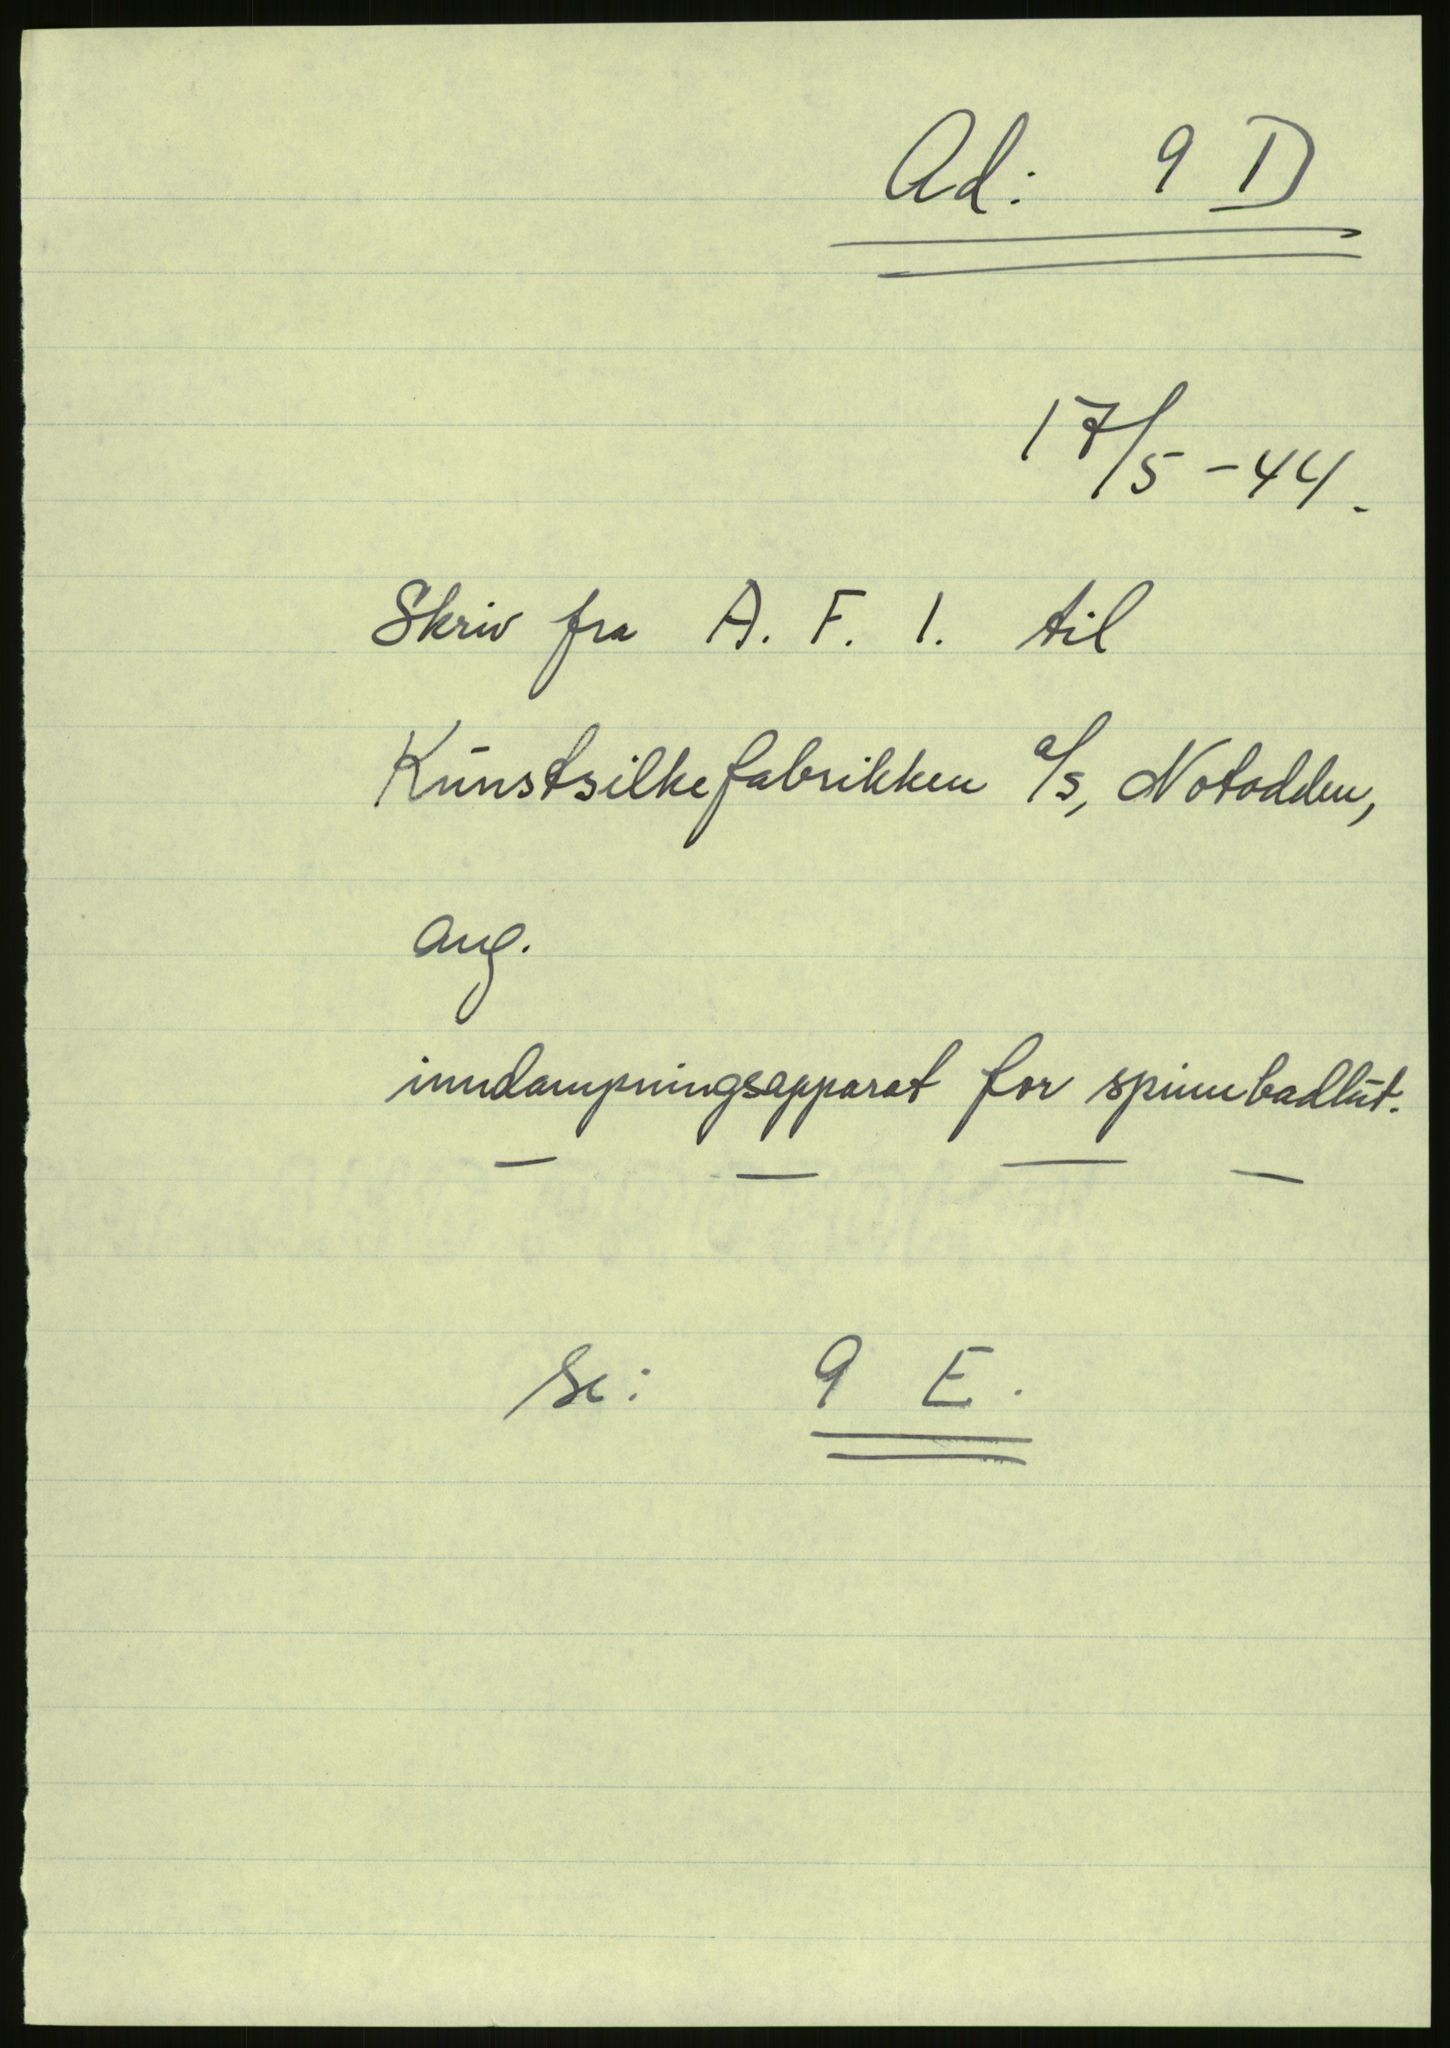 Ad: 9 D
17/5 - 44.
Skriv fra A. F. I. til
Kunstsilkefabrikken a/s, Notodden,
ang.
inndampningsapparat for spinnbadlut.
Se: 9 E.